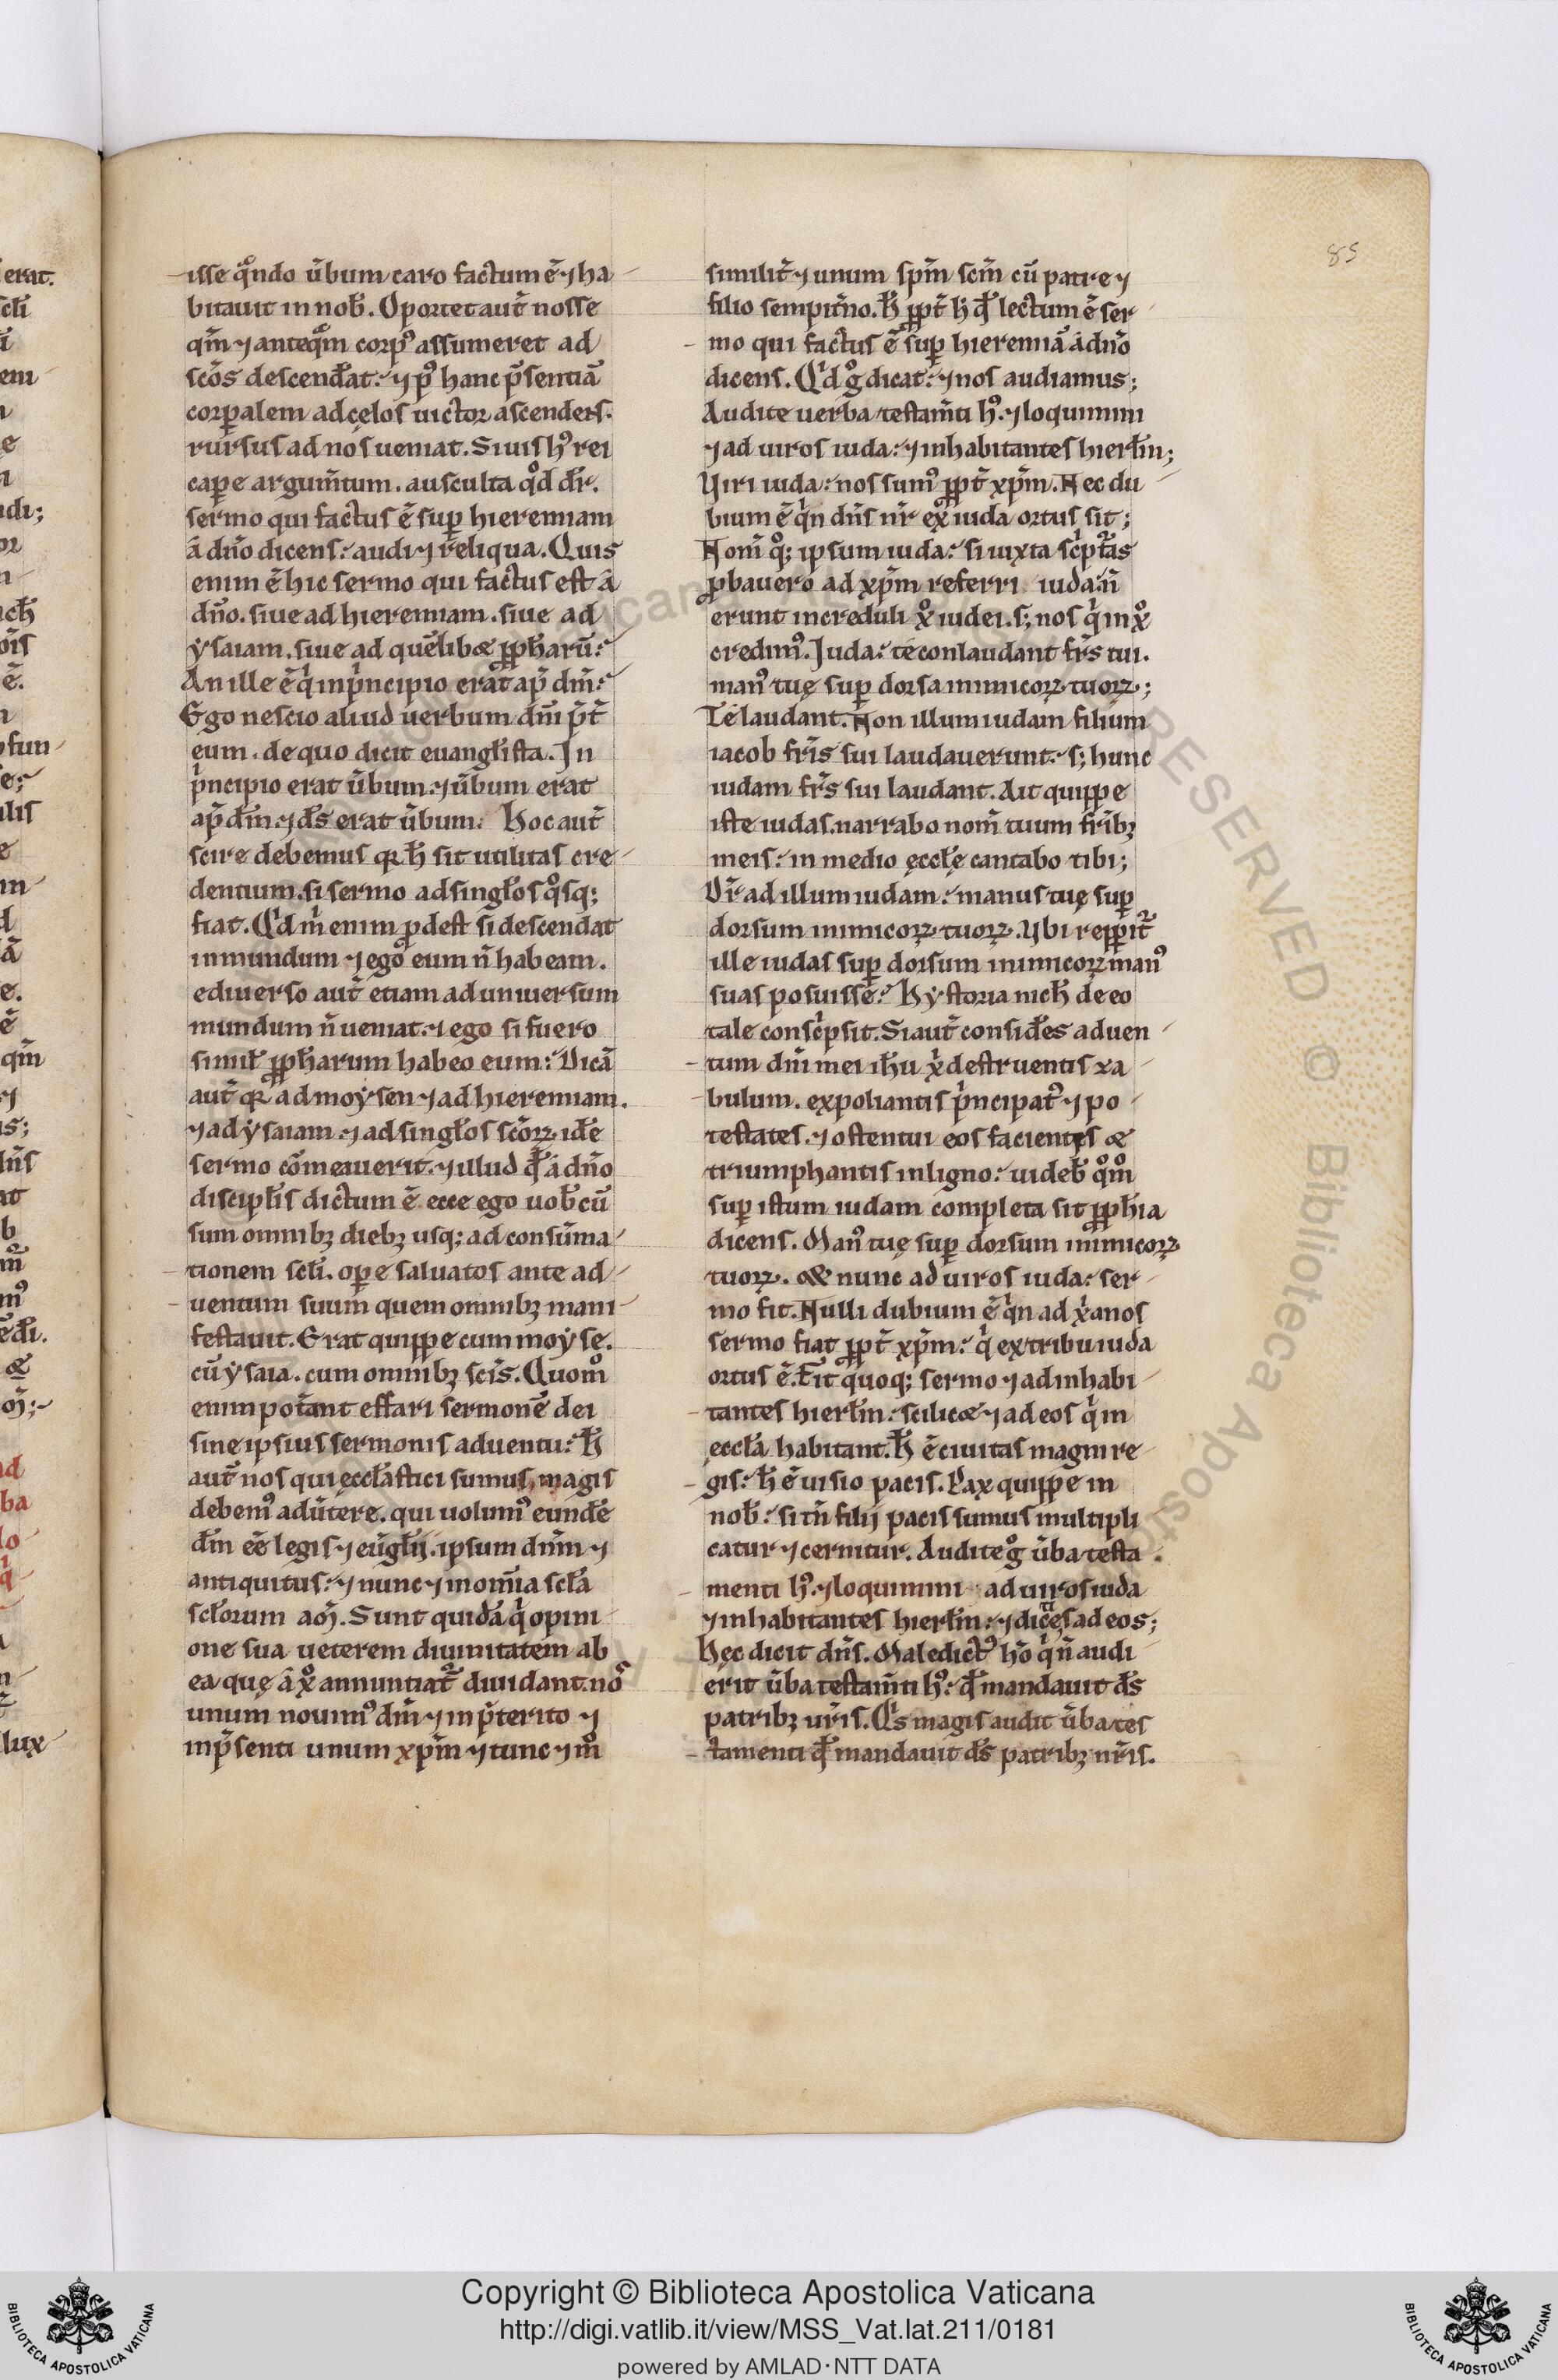 isse qn̊do ūbum caro factum ē ⁊ ha
bitauit in nob̄. Oportet aut̄ nosse
qm̄ ⁊ anteq̄m corpꝰ assumeret ad
scōs descend̄at:⁊ pꝰ hanc p̄sentiā
corꝑalem ad cęlos uictor ascendens.
rursus ad nos ueniat. Si uis hꝰ rei
caꝑe argum̄tum. ausculta qd̊ dr̄.
sermo qui factus ē suꝑ hieremiam
a dn̄o dicens: audi ⁊ reliqua. Quis
enim ē hic sermo qui factus est a
dn̄o. siue ad hieremiam. siue ad
ẏsaiam. siue ad quēlibæ ꝓpħarū:
An ille ē qͥ in pͥncipio erat ap̄ dm̄:
Ego nescio aliud uerbum dn̄i p̄t̄
eum. de quo dicit euangłista. In
pͥncipio erat ūbum. ⁊ ūbum erat
ap̄ dm̄. ⁊ ds̄ erat ūbum. Hoc aut̄
scire debemus qꝛ ħ sit utilitas cre
dentium. si sermo ad singłos qͦsq;
fiat. Qͥd m̄ enim ꝓdest si descendat
in mundum ⁊ ego eum n̄ habeam.
ediuerso aut̄ etiam ad uniuersum
mundum n̄ ueniat. ⁊ ego si fuero
simił ꝓpħarum habeo eum: Dicā
aut̄ qꝛ ad moẏsen ⁊ ad hieremiam.
⁊ ad ẏsaiam. ⁊ ad singłos scōꝝ. idē
sermo cōmeauerit. ⁊ illud qd̄ a dn̄o
discipłis dictum ē ecce ego uob̄cū
sum omnibꝫ diebꝫ usq; ad consūma
tionem scłi. oꝑe saluatos ante ad
uentum suum quem omnibꝫ mani
festauit. Erat quippe cum moẏse.
cū ẏsaia. cum omnibꝫ scīs. Quom̊
enim pot̄ant effari sermonē dei
sine ipsius sermonis aduentu: ħ
aut̄ nos qui ęccłastici sumus, magis
debemꝰ adūtere. qui uolumꝰ eundē
dm̄ eē legis ⁊ eūgłij. ipsum dnm̄ ⁊
antiquitus: ⁊ nunc ⁊ in om̄ia scła
scłorum am̄. Sunt quidā qͥ opini
one sua ueterem diuinitatem ab
ea quę a xͦ annuntiat᷑ diuidant. nos
unum nouimꝰ dm̄ ⁊ in p̄terito ⁊
in p̄senti unum xpm̄ ⁊ tunc ⁊ m̊
similit̄ ⁊ unum spm̄ scm̄ cū patre ⁊
filio sempit̄no. ħ ꝓpt̄ ħ qd̄ lectum ē ser
mo qui factus ē suꝑ hieremiā a dn̄o
dicens. Qͥd gͦ dicat: ⁊ nos audiamus;
Audite uerba testam̄ti hꝰ. ⁊ loquimini
⁊ ad uiros iuda: ⁊ inhabitantes hierłm;
Viri iuda: nos sumꝰ ꝓpt̄ xpm̄. Nec du
bium ē qͥn dn̄s nr̄ ex iuda ortus sit;
Nom̄ qͦ; ipsum iuda: si iuxta scͥpt̄as
ꝓbauero ad xpm̄ referri iuda: n̄
erunt increduli xͦ iudei. s; nos qͥ in xͦ
credimꝰ. Iuda: te conlaudant fr̄s tui.
manꝰ tuę suꝑ dorsa inimicoꝝ tuoꝝ;
Te laudant. Non illum iudam filium
iacob fr̄is sui laudauerunt: s; hunc
iudam fr̄s sui laudant. Ait quippe
iste iudas. narrabo nom̄ tuum fr̄ibꝫ
meis: in medio ęccłę cantabo tibi;
Dr̄ ad illum iudam: manus tuę suꝑ
dorsum inimicoꝝ tuoꝝ. Vbi reꝑit᷑
ille iudas suꝑ dorsum inimicoꝝ manꝰ
suas posuisse: Hẏstoria nicħ de eo
tale conscͥpsit. Si aut̄ consid̄es aduen
tum dn̄i mei ihu xͥ destruentis za
bulum. expoliantis pͥncipatꝰ ⁊ po
testates. ⁊ ostentui eos facientis æ
triumphantis in ligno: uideb̄ qͦm̊
suꝑ istum iudam completa sit ꝓpħia
dicens. Manꝰ tuę suꝑ dorsum inimicoꝝ
tuoꝝ. Æ nunc ad uiros iuda: ser
mo fit. Nulli dubium ē qͥn ad xͥanos
sermo fiat ꝓpt̄ xpm̄: qͥ ex tribu iuda
ortus ē. Fit quoq; sermo ⁊ ad inhabi
tantes hierłm: scilicæ ⁊ ad eos qͥ in
ęccła habitant. ħ ē ciuitas magni re
gis: ħ ē uisio pacis. Pax quippe in
nob̄: si tn̄ filij pacis sumus multipli
catur ⁊ cernitur. Audite gͦ ūba testa
menti hꝰ. ⁊ loquimini ad uiros iuda
⁊ inhabitantes hierłm: ⁊ dices ad eos;
Hęc dicit dn̄s. Maledictꝰ hō qͥ n̄ audi
erit ūba testam̄ti hꝰ: qd̄ mandauit ds̄
patribꝫ ur̄is. Qͥs magis audit ūba tes
tamenti qd̄ mandauit ds̄ patribꝫ nr̄is.
85
Copyright © Biblioteca Apostolica Vaticana
http://digi.vatlib.it/view/MSS_Vat.lat.211/0181
powered by AMLAD·NTT DATA